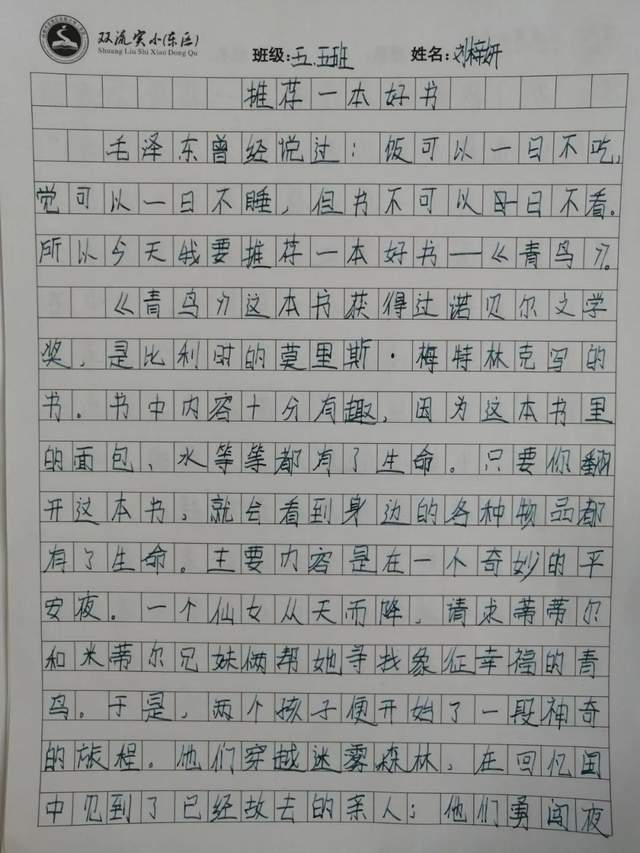 双流实小(东区)
Shuang Liu Shi Xiao Dong Qu
班级:五.五班 姓名:刘梓妍
推荐一本好书
毛泽东曾经说过：饭可以一日不吃，
觉可以一日不睡，但书不可以毋日不看。
所以今天我要推荐一本好书——《青鸟》。
《青鸟》这本书获得过诺贝尔文学
奖，是比利时的莫里斯·梅特林克写的
书。书中内容十分有趣，因为这本书里
的面包、水等等都有了生命。只要你翻
开这本书，就会看到身边的各种物品都
有了生命。主要内容是在一个奇妙的平
安夜。一个仙女从天而降，请求蒂蒂尔
和米蒂尔兄妹俩帮她寻找象征幸福的青
鸟。于是，两个孩子便开始了一段神奇
的旅程。他们穿越迷雾森林，在回忆国
中见到了已经故去的亲人；他们勇闯夜